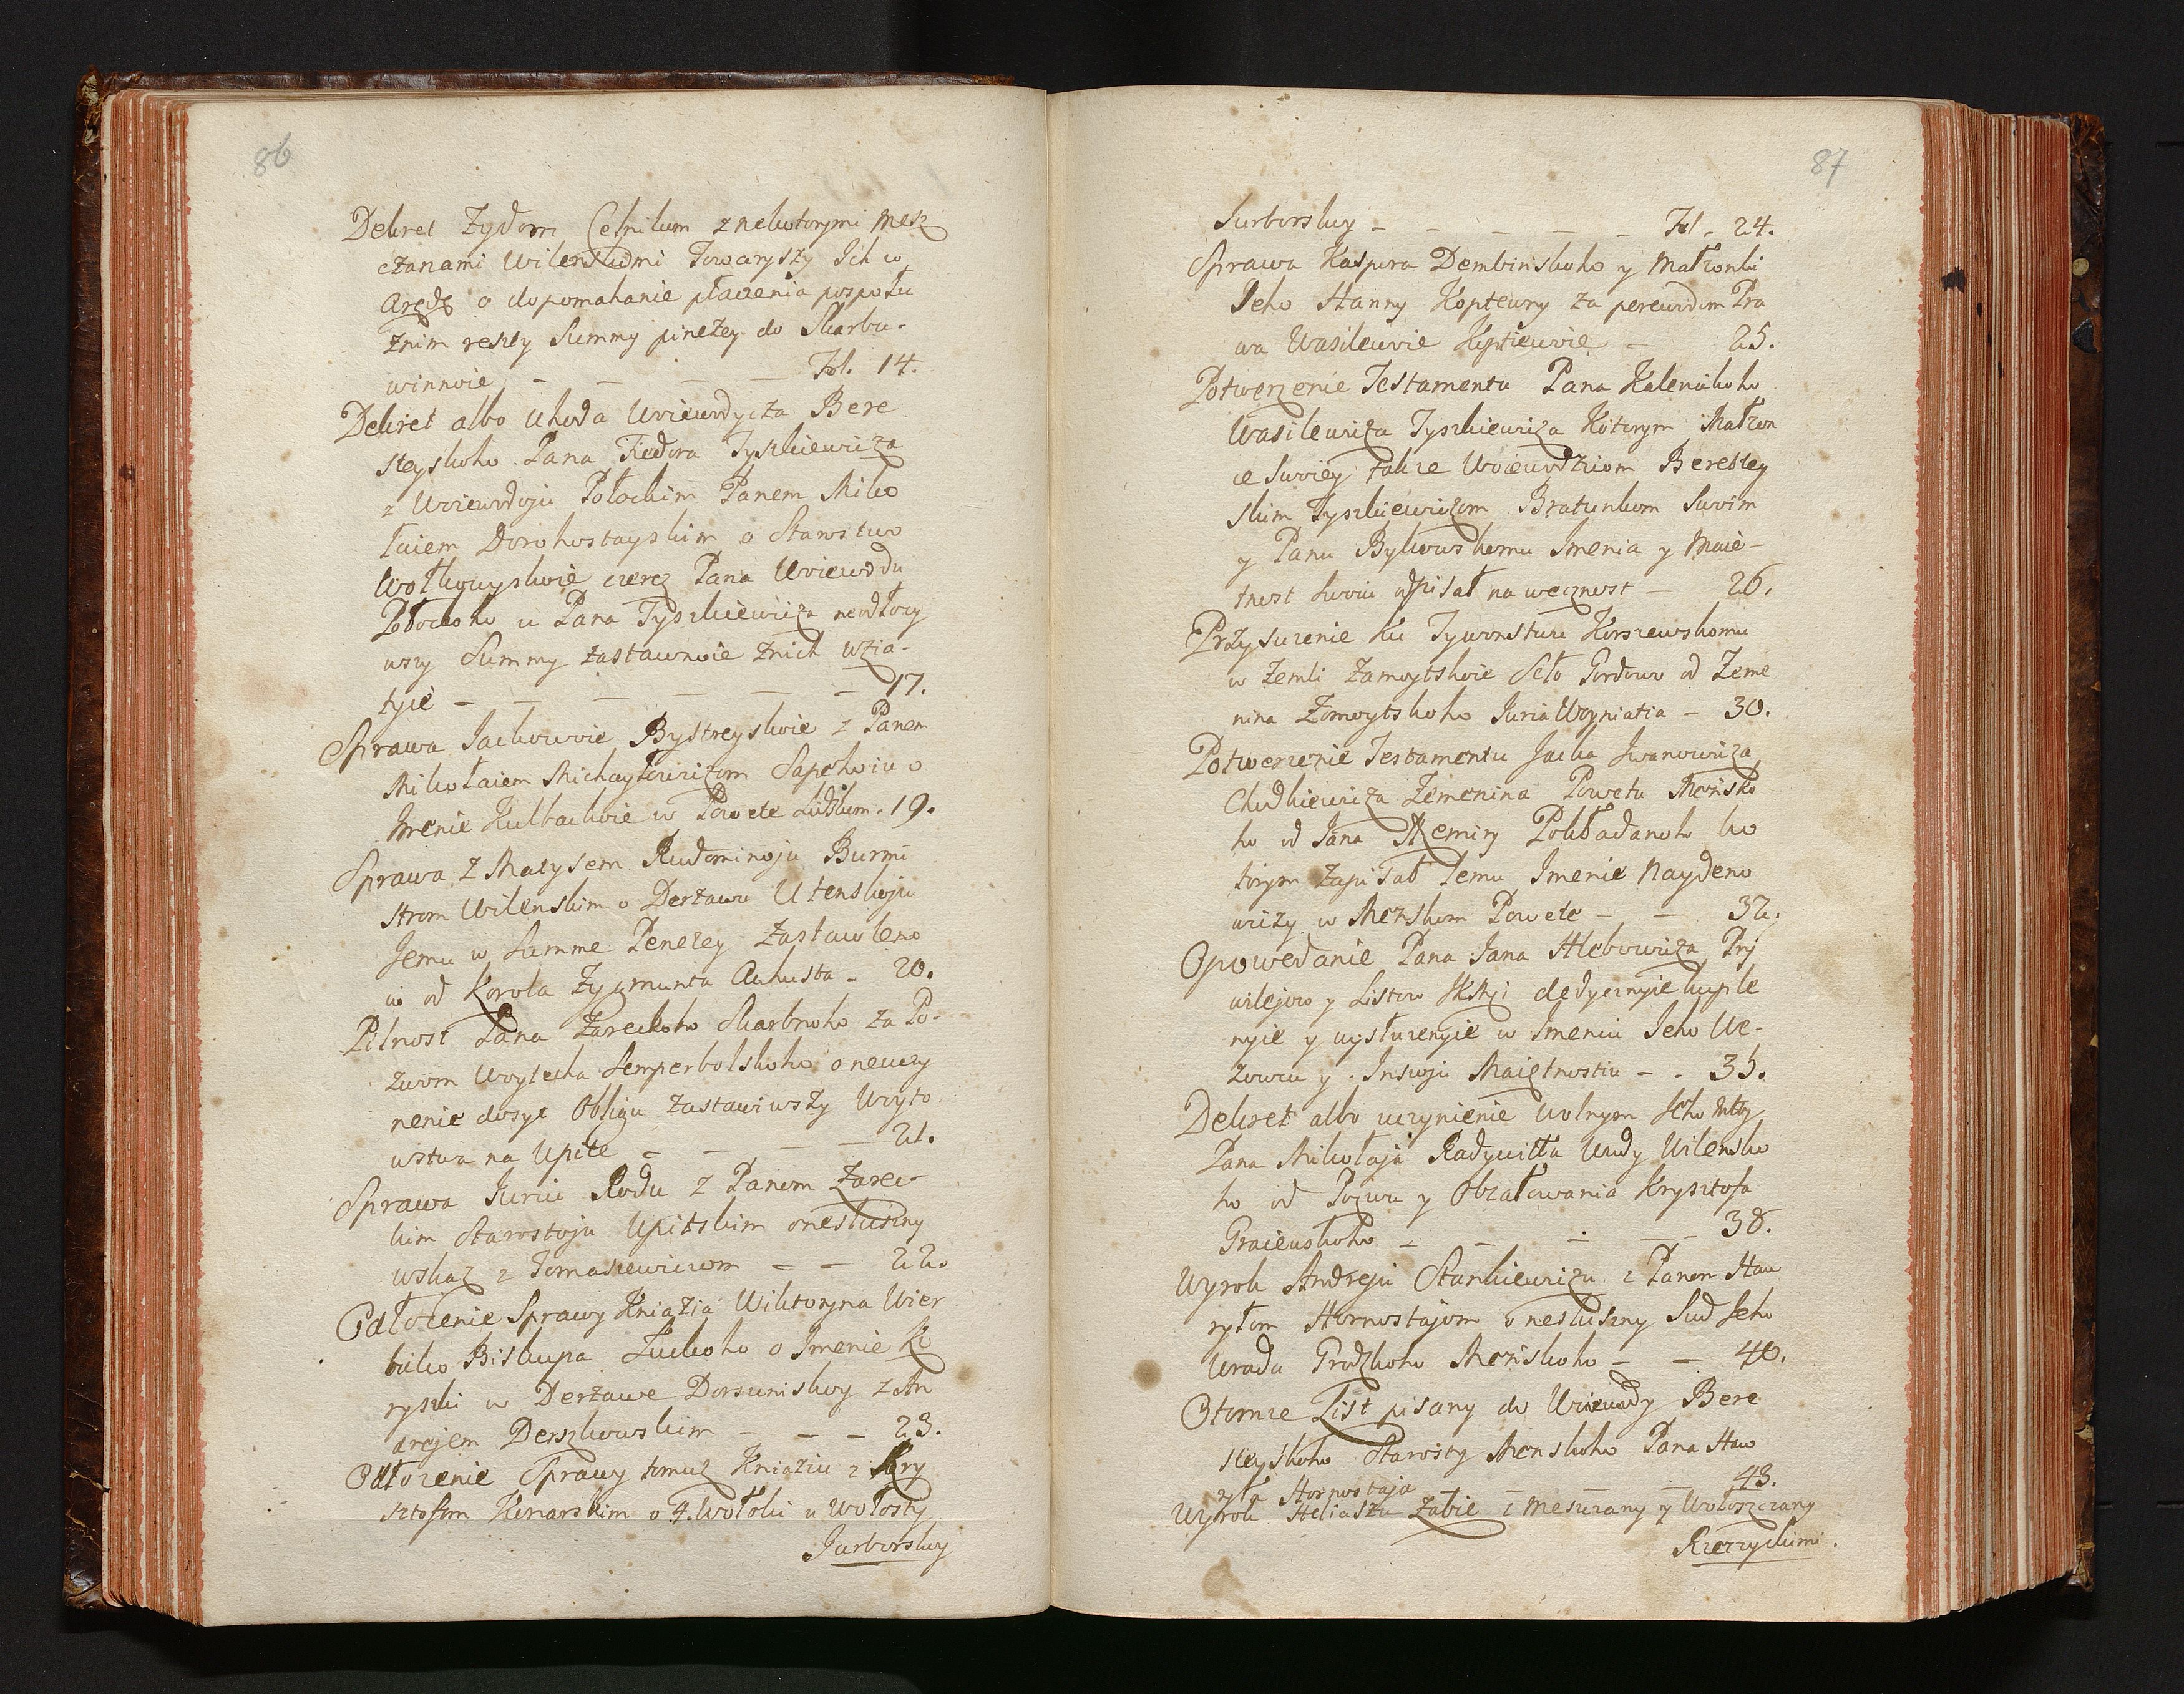 86
Dekret Zydom Celnikum z nekotorymi Mesz
czanami Wilenskimi Towaryszy Ich w
Arędę o dopomahanie płacenia pospołu
z nim reszty Summy pinezey do Skarbu
winnoie - - - - Fol. 14.
Dekret albo Uhoda Woiewodycza Bere
steyskoho Pana Fiedora Tyszkiewicza
z Woiewodoju Połockim Panem Miko
łaiem Dorohostayskim o Starostwo
Wołkowyskoie czerez Pana Woiewodu
Połockoho u Pana Tyszkiewicza neodłozy
wszy Summy zastawnoie z nich wzia-
tyie - - - - - 17.
Sprawa Jackowoie Bystreyskoie z Panem
Mikołaiem Michayłowiczom Sapehoiu o
Imenie Kulbackoie w Powete Lidzkum. 19.
Sprawa z Matysem Rudominoju Burmi
strom Wilenskim o Derżawu Utenskoju
Jemu w Summe Penezey Zastawleno
iu od Korola Zygmunta Auhusta - 20.
Pilnost Pana Zareckoho Skarbnoho za Po-
zwom Woytecha Semperbolskoho o neuczy
nenie dosyt Obligu Zastawiwszy Woyto
wstwa na Upite - - - - 21.
Sprawa Juriu Rodu z Panom Zarec
kim Starostoju Upitskim o nesluszny
wskaz z Tomaszewiczom - - 22.
Odłożenie Sprawy Kniazia Wiktoryna Wier
bicko Biskupa Łuckoho o Imenie Ko
ryszki w Derżawe Dorsuniskoy z An
drejem Derszkowskim - - - 23.
Odłozenie Sprawy tomuz Kniaziu z Kry
sztofom Kunarskim o 4. Wołoki u Wołosty
Jurborskoy
87
Jurborskoy - - - - - Fol - 24.
Sprawa Kaspera Dembinskoho y Małzonki
Jeho Hanny Kopteuny za perewodom Pra
wa Wasilewie Koptiewie - 25.
Potwerzenie Testamentu Pana Kalenickoho
Wasilewicza Tyszkiewicza Kotorym Małzon
ce Swoiey także Woiewodziom Beresztey
skim Tyszkiewiczom Bratunkom Swoim
y Panu Bykowskomu Imenia y Maie-
tnost swoiu odpisał na wecznost - 26.
Przysużenie Ku Tywonstwu Korszewskomu
w Zemli Zamoytskoie Seło Gordowo od Zeme
nina Zomoytskoho Juria Woyniatia - 30.
Potwerzenie Testamentu Jacka Iwanowicza
Chodkiewicza Zemenina Powetu Mensko
ho od Jana Nemiry Pokładanoho ko
torym zapisał Jemu Imenie Naydeno
wiczy w Menskom Powete - - 32.
Opowedanie Pana Jana Hlebowicza Pry
wilejow y Listow dedycznyie kuple
nyie y wysłużenyie w Imeniu Jeho We-
zowcu y Inszoju Maiętnostiu - - 35.
Dekret albo uczynienie wolnym Jeho Mty
Pana Mikołaja Radywiłła Wdy Wilensko
ho od Pozwu y Obżałowania Krysztofa
Graiewskoho - - - - - 38.
Wyrok Andreju Stankiewiczu z Panom Haw
ryłom Hornostajom o nesluszny Sud Jeho
Uradu Grodzkoho Menskoho - - 40.
Otomze List pisany do Woiewody Bere
steyskoho Starosty Menskoho Pana Haw
ryła Hornostaja - - 43.
Wyrok Heliaszu Zabie z Meszczany y Wołoszczany
Rzeczyckimi.